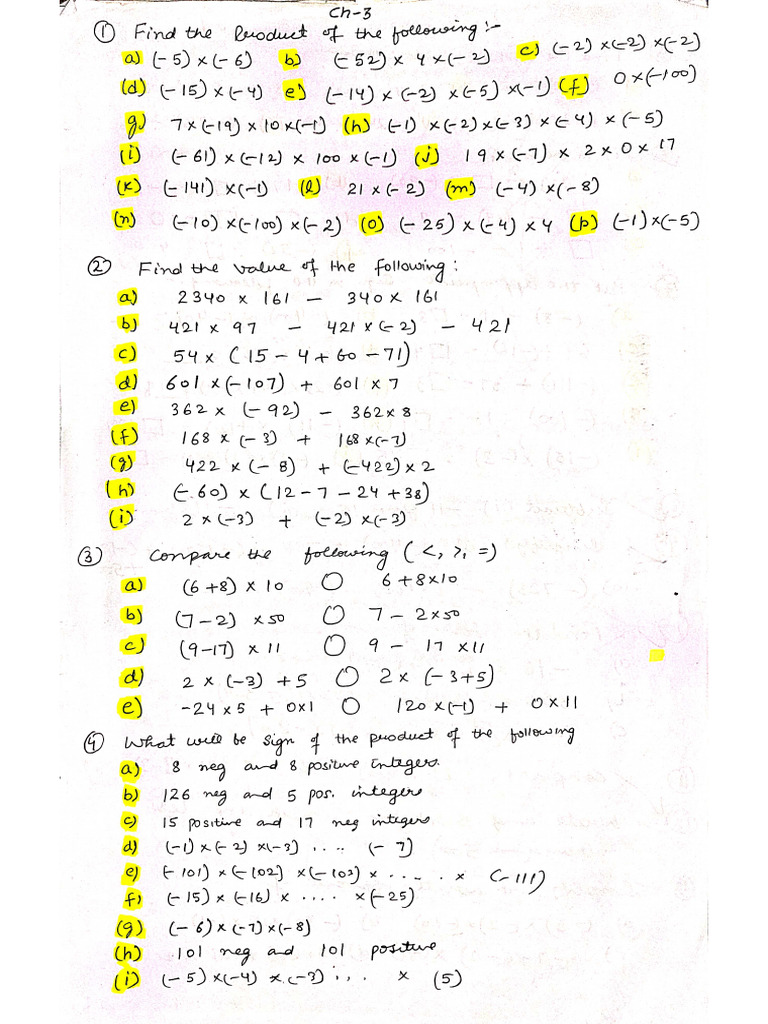 Ch-3
① Find the Product of the following:-
a) (-5)×(-6) b) (-52)×4×(-2) c) (-2)×(-2)×(-2)
(d) (-15)×(-4) e) (-14)×(-2)×(-5)×(-1) (f) 0×(-100)
g) 7×(-19)×10×(-1) (h) (-1)×(-2)×(-3)×(-4)×(-5)
(i) (-61)×(-12)×100×(-1) (j) 19×(-7)×2×0×17
(k) (-141)×(-1) (l) 21×(-2) (m) (-4)×(-8)
(n) (-10)×(-100)×(-2) (o) (-25)×(-4)×4 (p) (-1)×(-5)
② Find the value of the following:
a) 2340 × 161 - 340 × 161
b) 421 × 97 - 421 × (-2) - 421
c) 54 × (15 - 4 + 60 - 71)
d) 601 × (-107) + 601 × 7
e) 362 × (-92) - 362 × 8
(f) 168 × (-3) + 168 × (-7)
(g) 422 × (-8) + (-422) × 2
(h) (-60) × (12 - 7 - 24 + 38)
(i) 2 × (-3) + (-2) × (-3)
③ Compare the following (<, >, =)
a) (6+8) × 10 ○ 6+8×10
b) (7-2) × 50 ○ 7 - 2×50
c) (9-17) × 11 ○ 9 - 17 × 11
d) 2 × (-3) + 5 ○ 2 × (-3+5)
e) -24 × 5 + 0×1 ○ 120 × (-1) + 0 × 11
④ What will be sign of the product of the following
a) 8 neg and 8 positive integers.
b) 126 neg and 5 pos. integers
c) 15 positive and 17 neg integers
d) (-1)×(-2)×(-3) .... (-7)
e) (-101)×(-102)×(-103)× ..... × (-111)
f) (-15)×(-16)× .... ×(-25)
(g) (-6)×(-7)×(-8)
(h) 101 neg and 101 positive
(i) (-5)×(-4)×(-3) ... × (5)